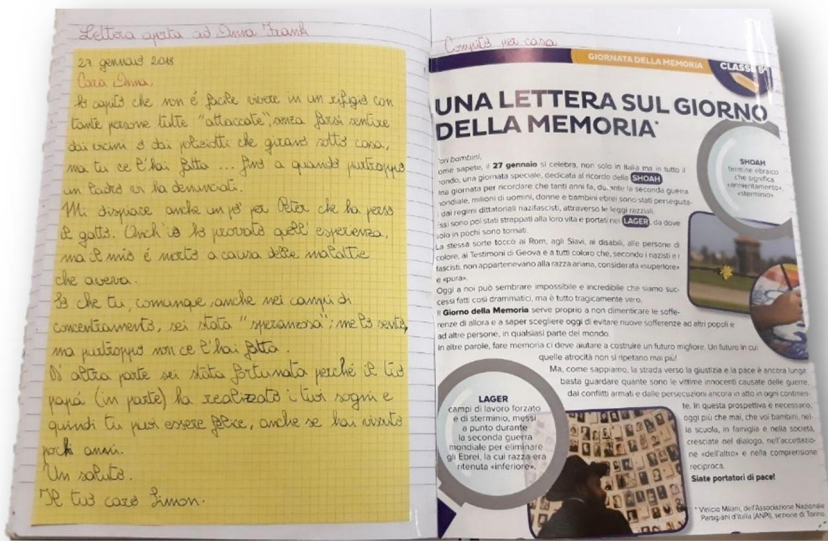 Lettera aperta ad Anna Frank
27 gennaio 2018
Cara Anna,
ho capito che non é facile vivere in un rifugio con
tante persone tutte "attaccate", senza farsi sentire
dai vicini o dai poliziotti che girano sotto casa,
ma tu ce l'hai fatta ... fino a quando purtroppo
un ladro vi ha denunciati.
Mi dispiace anche un pó per Peter che ha perso
il gatto. Anch'io ho provato quell'esperienza,
ma il mio é morto a causa delle malattie
che aveva.
So che tu, comunque, anche nei campi di
concentramento, sei stata "speranzosa"; me lo sento,
ma purtroppo non ce l'hai fatta.
D'altra parte sei stata fortunata perché il tuo
papá (in parte) ha realizzato i tuoi sogni e
quindi tu puoi essere felice, anche se hai vissuto
pochi anni.
Un saluto.
Il tuo caro Simon.
Compito per casa
GIORNATA DELLA MEMORIA
CLASSE 5ª
UNA LETTERA SUL GIORNO
DELLA MEMORIA*
bambini,
ome sapete, il 27 gennaio si celebra, non solo in Italia ma in tutto il
mondo, una giornata speciale, dedicata al ricordo della SHOAH
una giornata per ricordare che tanti anni fa, durante la seconda guerra
mondiale, milioni di uomini, donne e bambini ebrei sono stati perseguita-
dai regimi dittatoriali nazifascisti, attraverso le leggi razziali.
ssi sono poi stati strappati alla loro vita e portati nei LAGER, da dove
solo in pochi sono tornati.
La stessa sorte toccò ai Rom, agli Slavi, ai disabili, alle persone di
colore, ai Testimoni di Geova e a tutti coloro che, secondo i nazisti e i
fascisti, non appartenevano alla razza ariana, considerata «superiore»
e «pura».
Oggi a noi può sembrare impossibile e incredibile che siano suc-
cessi fatti così drammatici, ma è tutto tragicamente vero.
Il Giorno della Memoria serve proprio a non dimenticare le soffe-
renze di allora e a saper scegliere oggi di evitare nuove sofferenze ad altri popoli e
ad altre persone, in qualsiasi parte del mondo.
In altre parole, fare memoria ci deve aiutare a costruire un futuro migliore. Un futuro in cui
quelle atrocità non si ripetano mai più!
Ma, come sappiamo, la strada verso la giustizia e la pace è ancora lunga:
basta guardare quante sono le vittime innocenti causate delle guerre,
dai conflitti armati e dalle persecuzioni ancora in atto in ogni continen-
te. In questa prospettiva è necessario,
oggi più che mai, che voi bambini, nel-
la scuola, in famiglia e nella società,
cresciate nel dialogo, nell'accettazio-
ne «dell'altro» e nella comprensione
reciproca.
Siate portatori di pace!
* Vinicio Milani, dell'Associazione Nazionale
Partigiani d'Italia (ANPI), sezione di Torino.
SHOAH
termine ebraico
che significa
«annientamento»,
«sterminio»
LAGER
campi di lavoro forzato
e di sterminio, messi
a punto durante
la seconda guerra
mondiale per eliminare
gli Ebrei, la cui razza era
ritenuta «inferiore».